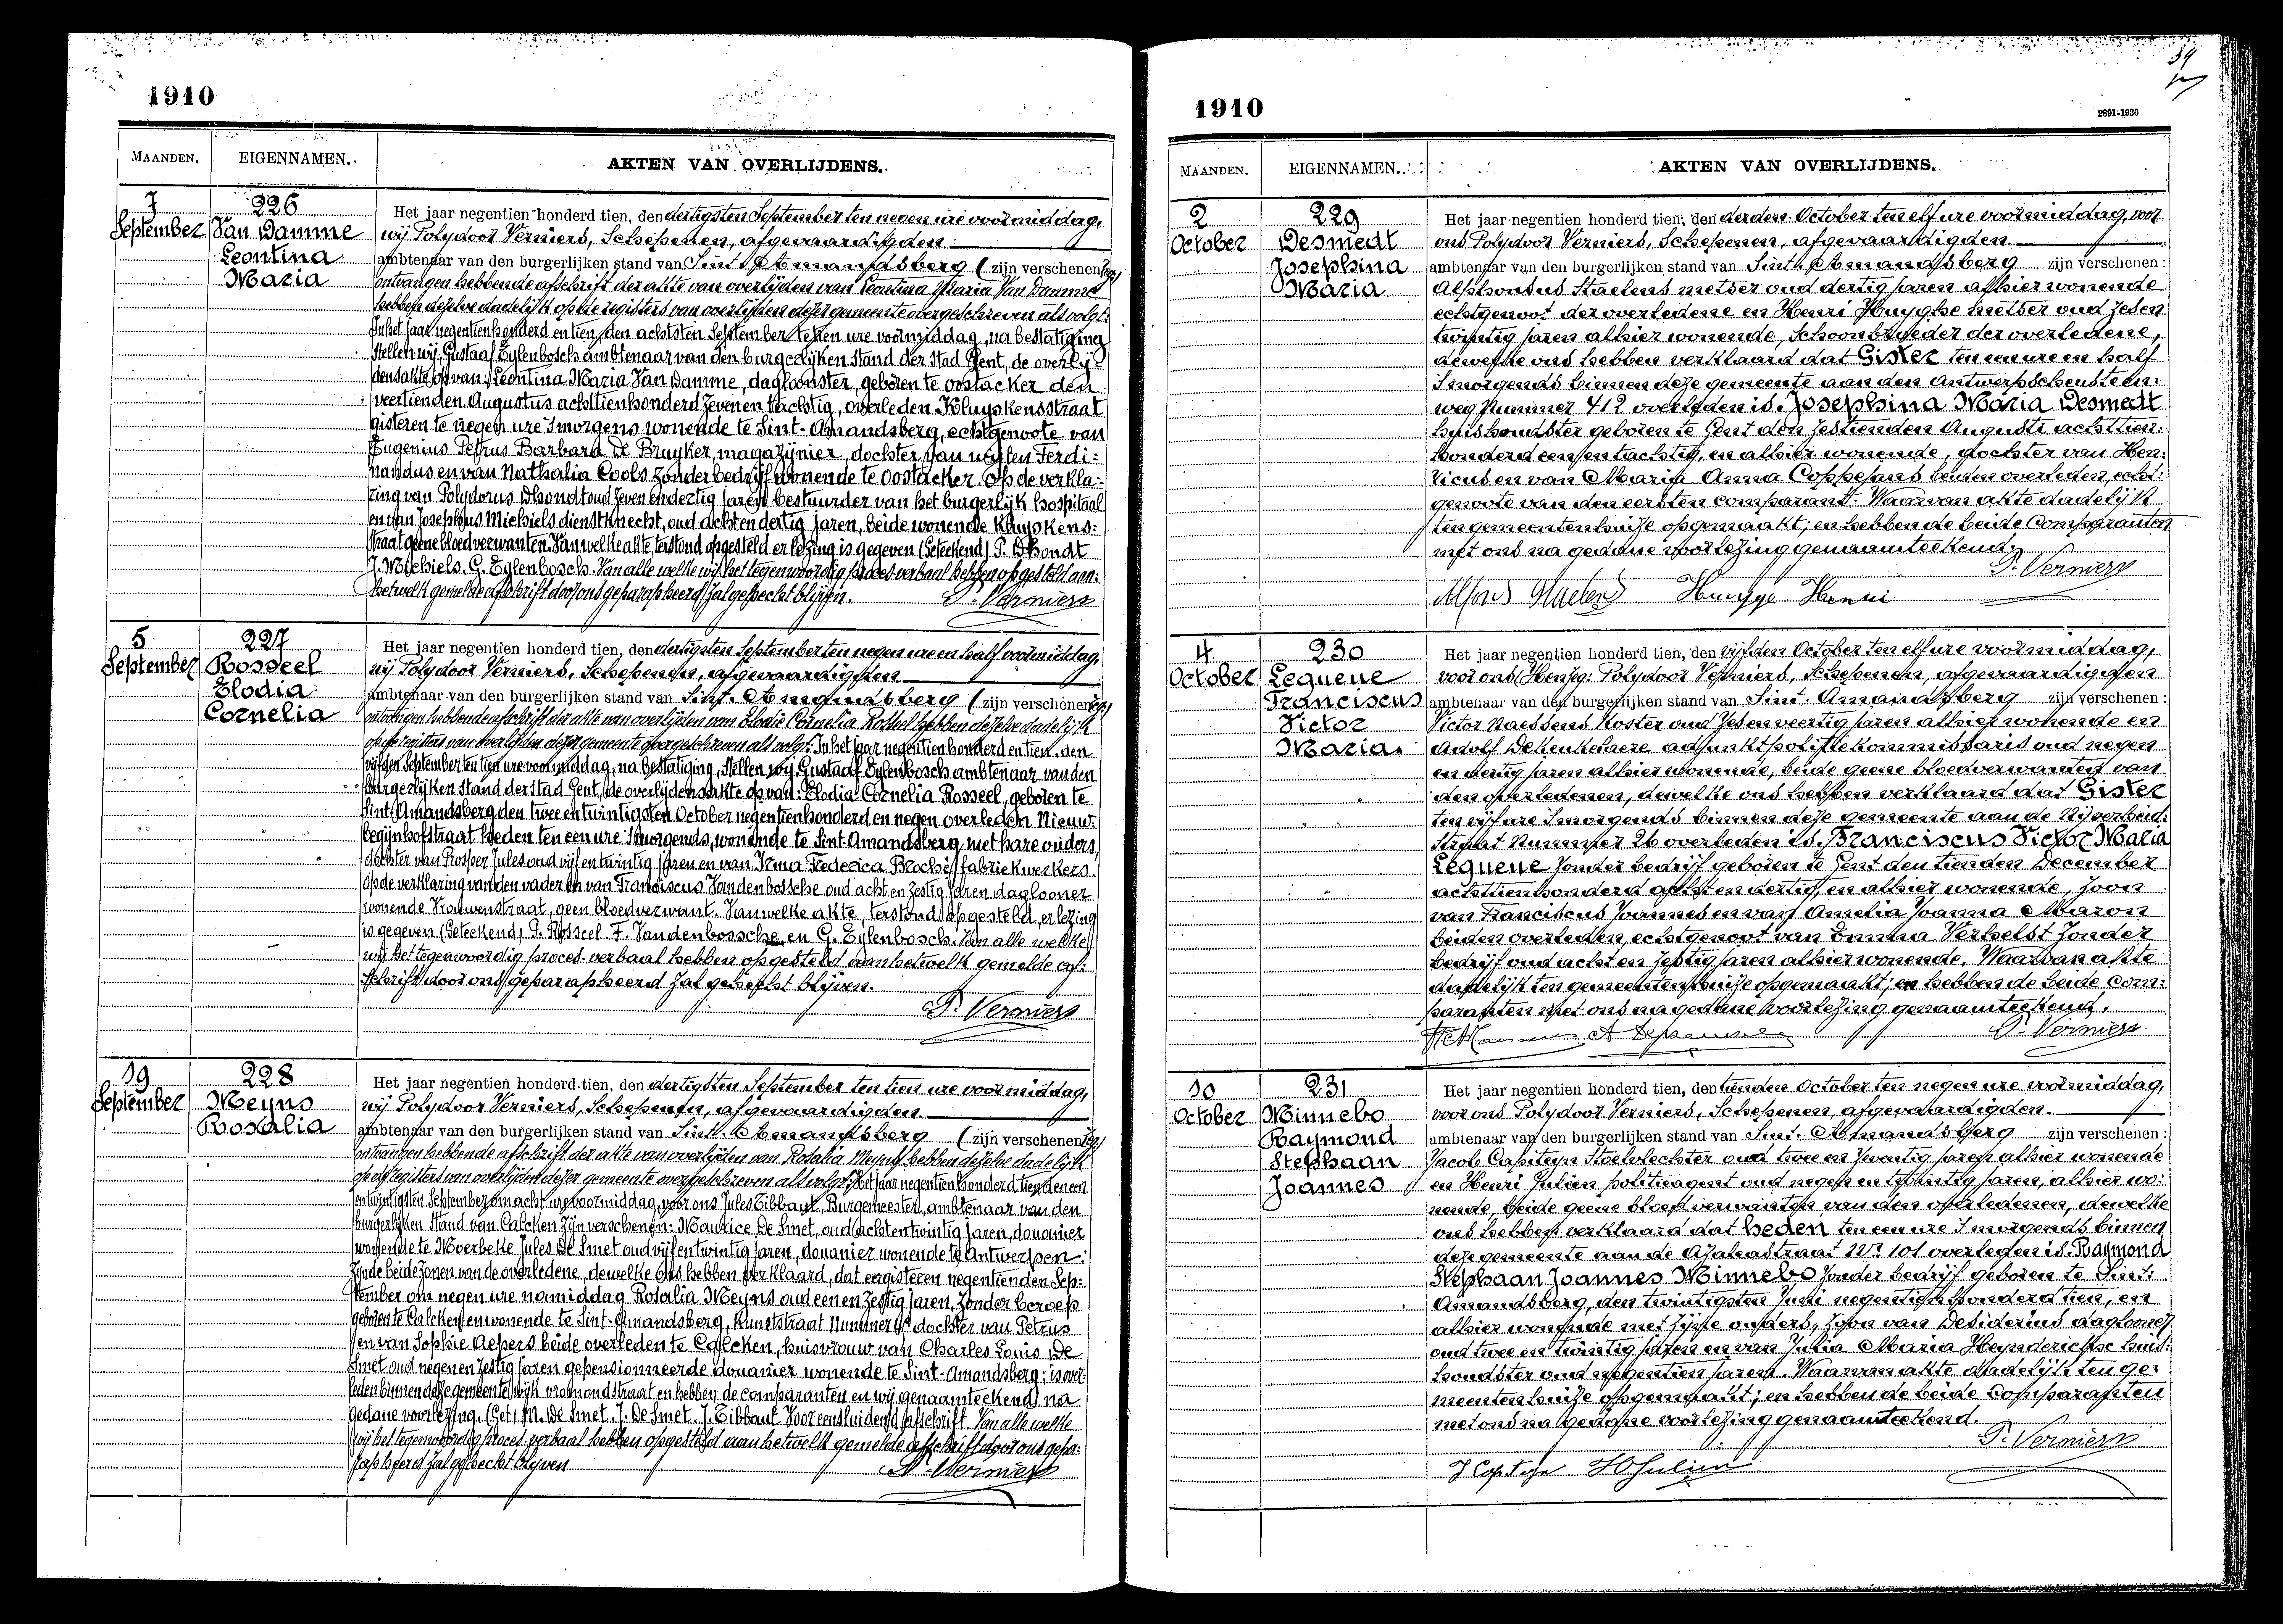 1910
MAANDEN. EIGENNAMEN. AKTEN VAN OVERLIJDENS.
7 September
226
Van Damme
Leontina
Maria
Het jaar negentien honderd tien, den dertigsten September ten negen ure voormiddag,
wij Polydoor Verniers, Schepenen, afgevaardigden
ambtenaar van den burgerlijken stand van Sint Amandsberg ( zijn verschenen
ontvangen hebbende afschrift der akte van overlijden van Leontina Maria Van Damme
hebben dezelve dadelijk op de registers van overlijden dezer gemeente overgeschreven als volgt:
In het jaar negentien honderd en tien, den achtsten September te tien ure voormiddag, na bestatiging
stellen wij, Gustaaf Eylenbosch ambtenaar van den burgerlijken stand der stad Gent, de overlij-
densakte op van: Leontina Maria Van Damme, dagloonster, geboren te Oostacker den
veertienden Augustus achttien honderd zeven en tachtig, overleden Kluyskensstraat
gisteren te negen ure 's morgens wonende te Sint-Amandsberg, echtgenoote van
Eugenius Petrus Barbara De Bruyker, magazijnier, dochter van wijlen Ferdi=
nandus en van Nathalia Cools zonder bedrijf wonende te Oostacker. Op de verkla=
ring van Polydorus Dhondt oud zeven en dertig jaren bestuurder van het burgerlijk hospitaal
en van Josephus Michiels dienstknecht, oud acht en dertig jaren, beide wonende Kluyskens=
straat geene bloedverwanten. Van welke akte, terstond opgesteld er lezing is gegeven (Geteekend) P. Dhondt
J. Michiels. G. Eylenbosch. Van alle welke wij het tegenwoordig proces verbaal hebben opgesteld aan=
hetwelk gemelde afschrift door ons geparapheerd zal gehecht blijven.
P. Verniers
5 September
227
Rosseel
Elodia
Cornelia
Het jaar negentien honderd tien, den dertigsten September ten negen ure en half voormiddag,
wij Polydoor Verniers, Schepenen, afgevaardigden
ambtenaar van den burgerlijken stand van Sint-Amandsberg ( zijn verschenen
ontvangen hebbende afschrift der akte van overlijden van Elodie Cornelia Rosseel hebben dezelve dadelijk
op de registers van overlijden dezer gemeente overgeschreven als volgt: In het jaar negentien honderd en tien, den
vijfden September ten tien ure voormiddag, na bestatiging, stellen wij, Gustaaf Eylenbosch ambtenaar van den
burgerlijken stand der stad Gent, de overlijdensakte op van: Elodia Cornelia Rosseel, geboren te
Sint-Amandsberg den twee en twintigsten October negentien honderd en negen overleden Nieuw
begijnhofstraat heden ten een ure 's morgends, wonende te Sint-Amandsberg, met hare ouders,
dochter van Prosper Jules oud vijf en twintig jaren en van Irma Federica Broché, fabriekwerkers.
Op de verklaring van den vader en van Franciscus Vandenbossche oud acht en zestig jaren daglooner
wonende Vrouwenstraat, geen bloedverwant. Van welke akte, terstond opgesteld, er lezing
is gegeven (Geteekend) P. Rosseel. F. Vandenbossche en G. Eylenbosch. Van alle welke
wij het tegenwoordig proces-verbaal hebben opgesteld aan hetwelk gemelde af=
schrift door ons geparapheerd zal gehecht blijven.
P. Verniers
19 September
228
Meyns
Rosalia
Het jaar negentien honderd tien, den dertigsten September ten tien ure voormiddag,
wij Polydoor Verniers, Schepenen, afgevaardigden
ambtenaar van den burgerlijken stand van Sint-Amandsberg ( zijn verschenen
ontvangen hebbende afschrift der akte van overlijden van Rosalia Meyns hebben dezelve dadelijk
op de registers van overlijden dezer gemeente overgeschreven als volgt: Het jaar negentien honderd tien den een
en twintigsten September om acht ure voormiddag, voor ons Jules Tibbaut, Burgemeester, ambtenaar van den
burgerlijken stand van Calcken zijn verschenen: Maurice De Smet, oud acht en twintig jaren, douanier
wonende te Moerbeke Jules De Smet oud vijf en twintig jaren, douanier wonende te Antwerpen:
zijnde beide zonen van de overledene, dewelke ons hebben verklaard, dat eergisteren negentienden Sep=
tember om negen ure namiddag Rosalia Meyns oud een en zestig jaren, zonder beroep
geboren te Calcken en wonende te Sint-Amandsberg, Kunststraat Nummer dochter van Petrus
en van Sophie Aepers beide overleden te Calcken, huisvrouw van Charles Louis De
Smet oud negen en zestig jaren gepensionneerde douanier wonende te Sint-Amandsberg; is over=
leden binnen deze gemeente wijk vromondstraat en hebben de comparanten en wij genaamteekend na
gedane voorlezing. (Get) M. De Smet. J. De Smet. J. Tibbaut. Voor eensluidend afschrift. Van alle welke
wij het tegenwoordig proces-verbaal hebben opgesteld aan hetwelk gemelde afschrift door ons gepa=
rapheerd zal gehecht blijven
P. Verniers
1910
2891-1936
MAANDEN. EIGENNAMEN. AKTEN VAN OVERLIJDENS.
2 October
229
Desmedt
Josephina
Maria
Het jaar negentien honderd tien, den derden October ten elf ure voormiddag, voor
ons Polydoor Verniers, Schepenen, afgevaardigden
ambtenaar van den burgerlijken stand van Sint-Amandsberg zijn verschenen:
Alphonsus Staelens metser oud dertig jaren alhier wonende
echtgenoot der overledene en Henri Huyghe metser oud zeven
twintig jaren alhier wonende, schoonbroeder der overledene,
dewelke ons hebben verklaard dat Gister ten een ure en half
's morgends binnen deze gemeente aan den Antwerpschensteen=
weg Nummer 412 overleden is. Josephina Maria Desmedt
huishoudster geboren te Gent den zestienden Augusti achttien=
honderd een en tachtig, en alhier wonende, dochter van Hen=
ricus en van Maria Anna Coppejans beiden overleden, echt=
genoote van den eersten comparant. Waarvan akte dadelijk
ten gemeentenhuize opgemaakt, en hebben de beide Comparanten
met ons na gedane voorlezing genaamteekend.
P. Verniers
Alfons Staelens Huyge Henri
4 October
230
Lequeue
Franciscus
Victor
Maria.
Het jaar negentien honderd tien, den vijfden October ten elf ure voormiddag,
voor ons Polydoor Verniers, Schepenen, afgevaardigden
ambtenaar van den burgerlijken stand van Sint-Amandsberg zijn verschenen:
Victor Naessens koster oud zeven veertig jaren alhier wonende en
Adolf Dekeukelaere adjunktpolitiekommissaris oud negen
en dertig jaren alhier wonende, beide geene bloedverwanten van
den overledenen, dewelke ons hebben verklaard dat Gister
ten vijf ure 's morgends binnen deze gemeente aan de Nijverheid=
straat Nummer 26 overleden is. Franciscus Victor Maria
Lequeue zonder bedrijf geboren te Gent den tienden December
achttien honderd acht en dertig, en alhier wonende, zoon
van Franciscus Joannes en van Amelia Joanna Maron
beiden overleden, echtgenoot van Emma Verhelst zonder
bedrijf oud acht en zestig jaren alhier wonende. Waarvan akte
dadelijk ten gemeentenhuize opgemaakt; en hebben de beide com=
paranten met ons na gedane voorlezing genaamteekend.
P. Verniers
10 October
231
Minnebo
Raymond
Stephaan
Joannes
Het jaar negentien honderd tien, den tienden October ten negen ure voormiddag,
voor ons Polydoor Verniers, Schepenen, afgevaardigden.
ambtenaar van den burgerlijken stand van Sint-Amandsberg zijn verschenen:
Jacob Capiteyn Stoelvlechter oud twee en zeventig jaren alhier wonende
en Henri Julien politieagent oud negen en twintig jaren, alhier wo=
nende, beide geene bloedverwanten van den overledenen, dewelke
ons hebben verklaard dat heden ten een ure 's morgends binnen
deze gemeente aan de Azaleastraat Nr 101 overleden is: Raymond
Stephaan Joannes Minnebo zonder bedrijf geboren te Sint=
Amandsberg, den twintigsten Juni negentien honderd tien, en
alhier wonende met zijne ouders, zoon van Desiderius daglooner
oud twee en twintig jaren en van Julia Maria Heyndericksche huis=
houdster oud negentien jaren. Waarvan akte dadelijk ten ge=
meentenhuize opgemaakt; en hebben de beide Comparanten
met ons na gedane voorlezing genaamteekend.
P. Verniers